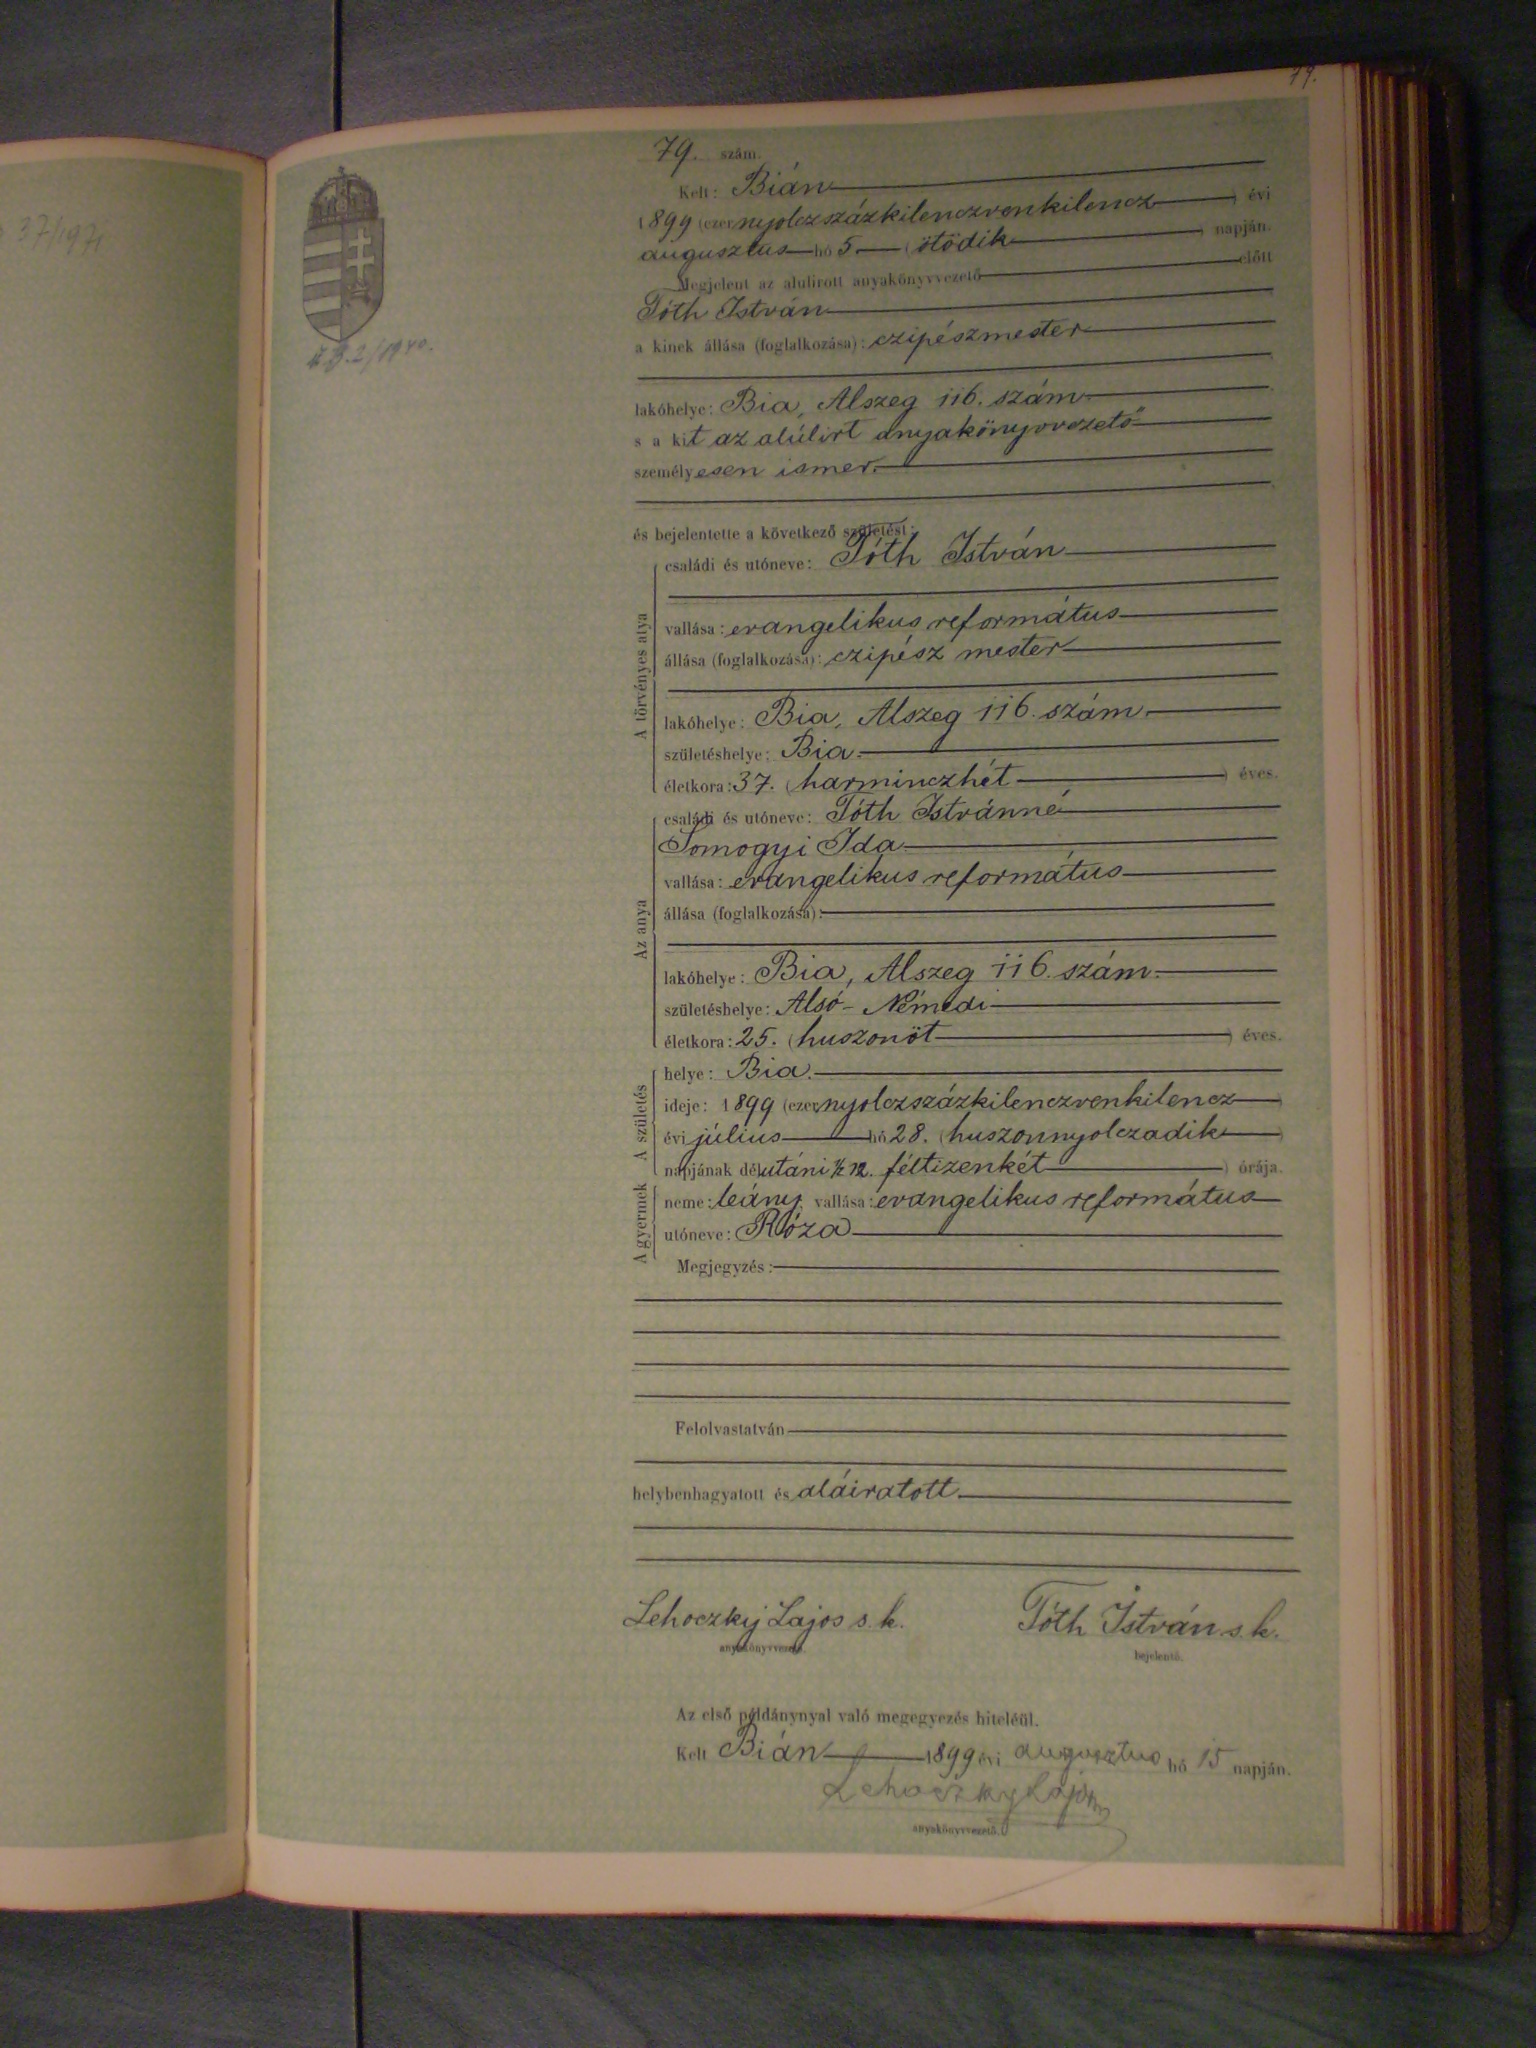 79.
37/1971
79. szám.
Kelt: Bián
1899 (ezernyolczszázkilenczvenkilencz) évi
augusztus hó 5 (ötödik) napján.
Megjelent az alulirott anyakönyvvezető előtt
Tóth István
a kinek állása (foglalkozása): czipészmester
lakóhelye: Bia, Alszeg 116. szám
s a kit az alúlirt anyakönyvvezető
személyesen ismer.
és bejelentette a következő születést:
A törvényes atya
családi és utóneve: Tóth István
vallása: evangelikus református
állása (foglalkozása): czipész mester
lakóhelye: Bia, Alszeg 116. szám.
születéshelye: Bia.
életkora: 37. (harminczhét) éves.
Az anya
családi és utóneve: Tóth Istvánné
Somogyi Ida
vallása: evangelikus református
állása (foglalkozása):
lakóhelye: Bia, Alszeg 116. szám.
születéshelye: Alsó-Némedi
életkora: 25. (huszonöt) éves.
A születés
helye: Bia.
ideje: 1899 (ezernyolczszázkilenczvenkilencz)
évi július hó 28. (huszonnyolczadik)
napjának délutáni ½12. féltizenkét) órája.
A gyermek
neme: leány, vallása: evangelikus református
utóneve: Róza
Megjegyzés:
Felolvastatván
helybenhagyatott és aláiratott.
Lehoczky Lajos s. k. Tóth István s. k.
anyakönyvvezető. bejelentő.
Az első példánynyal való megegyezés hiteléül.
Kelt Bián 1899 évi augusztus hó 15 napján.
Lehoczky Lajos
anyakönyvvezető.